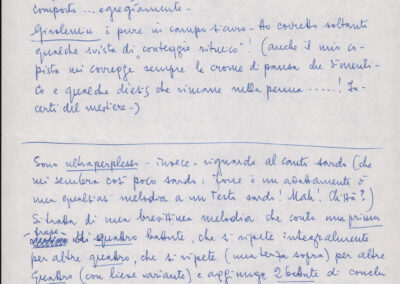 comporta ... egregiamente -
Girolemeu è pure in campo sicuro - Ho corretto soltanto
qualche svista di conteggio ritmico"! (anche il mio co-
pista mi corregge "sempre le crome di pausa che dimenti-
co e qualche diesis che rimane nella penna .....! In-
certi del mestiere -)
Sono ultraperplesso - invece - riguardo al canto sardo (che
mi sembra così poco sardo: forse è un adattamento di
una qualsiasi melodia a un testo sardo! Mah! Chissà?)
Si tratta di una brevissima melodia che conta una prima
frase
di quattro battute, che si ripete integralmente
per altre quattro, che si ripete (una terza sopra) per altre
quattro (con lieve variante) e aggiunge 2 battute di conclu